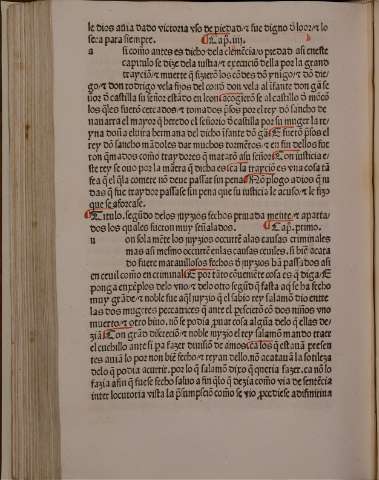 le dios auia dado victoria vso de piedad ⁊ fue digno ð loor ⁊ lo
sera para siempre. ¶ Cap̃. iiii.
a si como antes es dicho dela clemẽcia o piedad asi eneste
capitulo se dize dela iustiᷓ ⁊ execuciõ della por la grand
trayciõ ⁊ muerte q̃ fizierõ los cõdes dõ ynigo ⁊ dõ die-
go ⁊ don todrigo vela fijos del conð don vela al ifante don gᷓ se
ñor ð castilla su señor estãdo en leon acogierõ se al castillo ð mõcõ
los q̃les fuerõ cercados ⁊ tomados p̃sos por el rey dõ sancho de
nauarra el mayor q̃ heredo el señorio ð castilla por su muger la rey
na doña eluira hermana del dicho ifante dõ gᷓ ¶ E fuerõ p̃sos el
rey dõ sancho mãdoles dar muchos tormẽtos ⁊ en fin dellos fue
ron q̃mados como traydores q̃ matarõ a su señor ¶ Con iusticia e
ste rey se ouo por la manera q̃ dicha es ca la trayciõ es vna cosa tã
fea q̃ el q̃ la comete nõ deue passar sin pena ¶ Nõ plogo a dios q̃ iu
das q̃ fue traydor passasse sin pena que su iusticia le acuso ⁊ le fizo
que se aforcasse.
¶ Titulo. segũdo delos iuyzios fechos priuada mente ⁊ aparta
dos los quales fueron muy señalados. ¶ Cap̃. primo.
n on sola mẽte los iuyzios occurrẽ alas causas criminales
mas asi mesmo occurrẽ enlas causas ceuiles. si biẽ acata
do fuere marauillosos fechos ð iuyzios hã passados asi
en ceuil como en criminal ¶ E por tãto cõueniẽte cosa es q̃ diga ⁊
ponga enxẽplos delo vno ⁊ delo otro segũd q̃ fasta aq̃ se ha fecho
muy grãde ⁊ noble fue aq̃l iuyzio q̃ el sabio rey salamõ dio entre
las dos mugeres peccatrices q̃ ante el parescierõ cõ dos niños vno
muerto ⁊ otro biuo. nõ se podia prouar cosa alguna delo q̃ ellas de-
ziã ¶ Con grãd discreciõ ⁊ noble iuyzio el rey salamõ mando traer
el cuchillo ante si para fazer diuisiõ de amos ca los q̃ estauã presen
tes auiã lo por non biẽ fecho ⁊ reyan dello. nõ acatauã la sotileza
delo q̃ podia acurrir. por lo q̃ salamõ dixo q̃ queria fazer. ca nõ lo
fazia a fin q̃ fuese fecho saluo a fin q̃ lo q̃ dezia como via de sentẽcia
inter locutoria vista la p̃sumpsciõ como se vio procediese a difinitiua